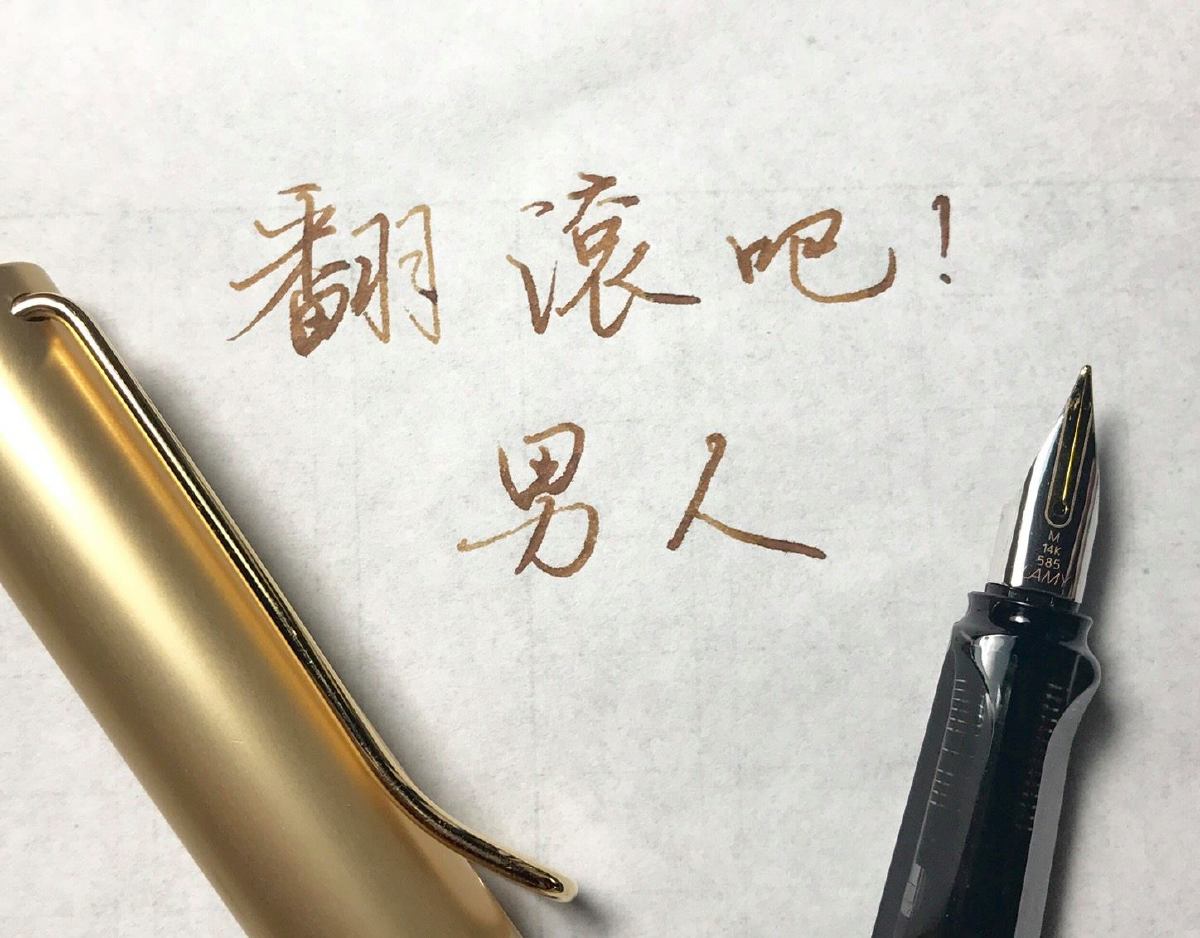 翻滚吧!
男人
M
14K
585
LAMY